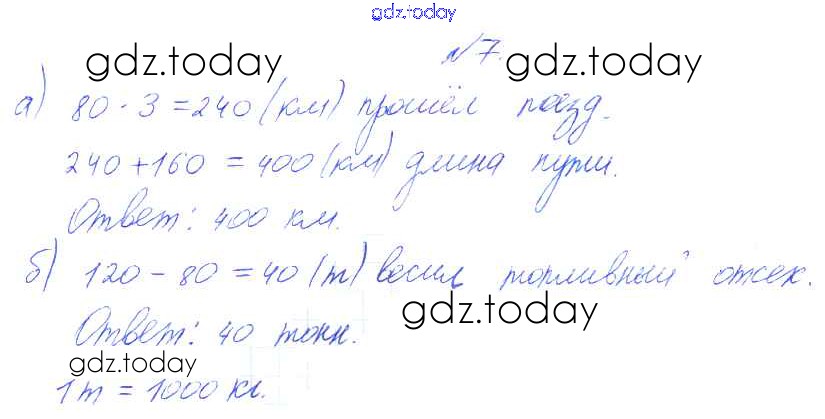 gdz.today
№7.
gdz.today gdz.today
а) 80 · 3 = 240 (км) прошёл поезд.
240 + 160 = 400 (км) длина пути.
Ответ: 400 км.
б) 120 - 80 = 40 (т) весил топливный отсек.
gdz.today
Ответ: 40 тонн.
gdz.today
1 т = 1000 кг.